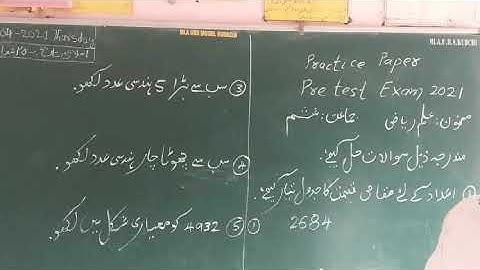 MLA.U.R.S.KUDCHI
Practice Paper
Pre test Exam 2021
مضمون: علم ریاضی جماعت: ششم
مندرجہ ذیل سوالات حل کیجیے.
① اعداد کے لئے مقامی قیمت کا جدول تیار کیجیے.
① 2684
MLA GUH MODEL KUDACHI
04-2021 Thursday
③ سب سے بڑا 5 ہندسی عدد لکھو.
④ سب سے چھوٹا چار ہندسی عدد لکھو.
⑤ 4932 کو معیاری شکل میں لکھو.